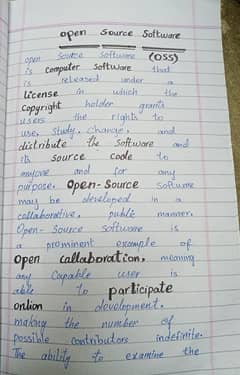 open Source Software
open Source Software (OSS)
is computer software that
is released under a
license in which the
copyright holder grants
users the rights to
use, study, change, and
distribute the Software and
its source code to
anyone and for any
purpose. Open-Source Software
may be developed in a
collaborative, public manner.
Open-Source Software is
a prominent example of
open callaboration, meaning
any Capable user is
able to participate
onlion in development,
making the number of
possible contributors indefinite.
The ability to examine the